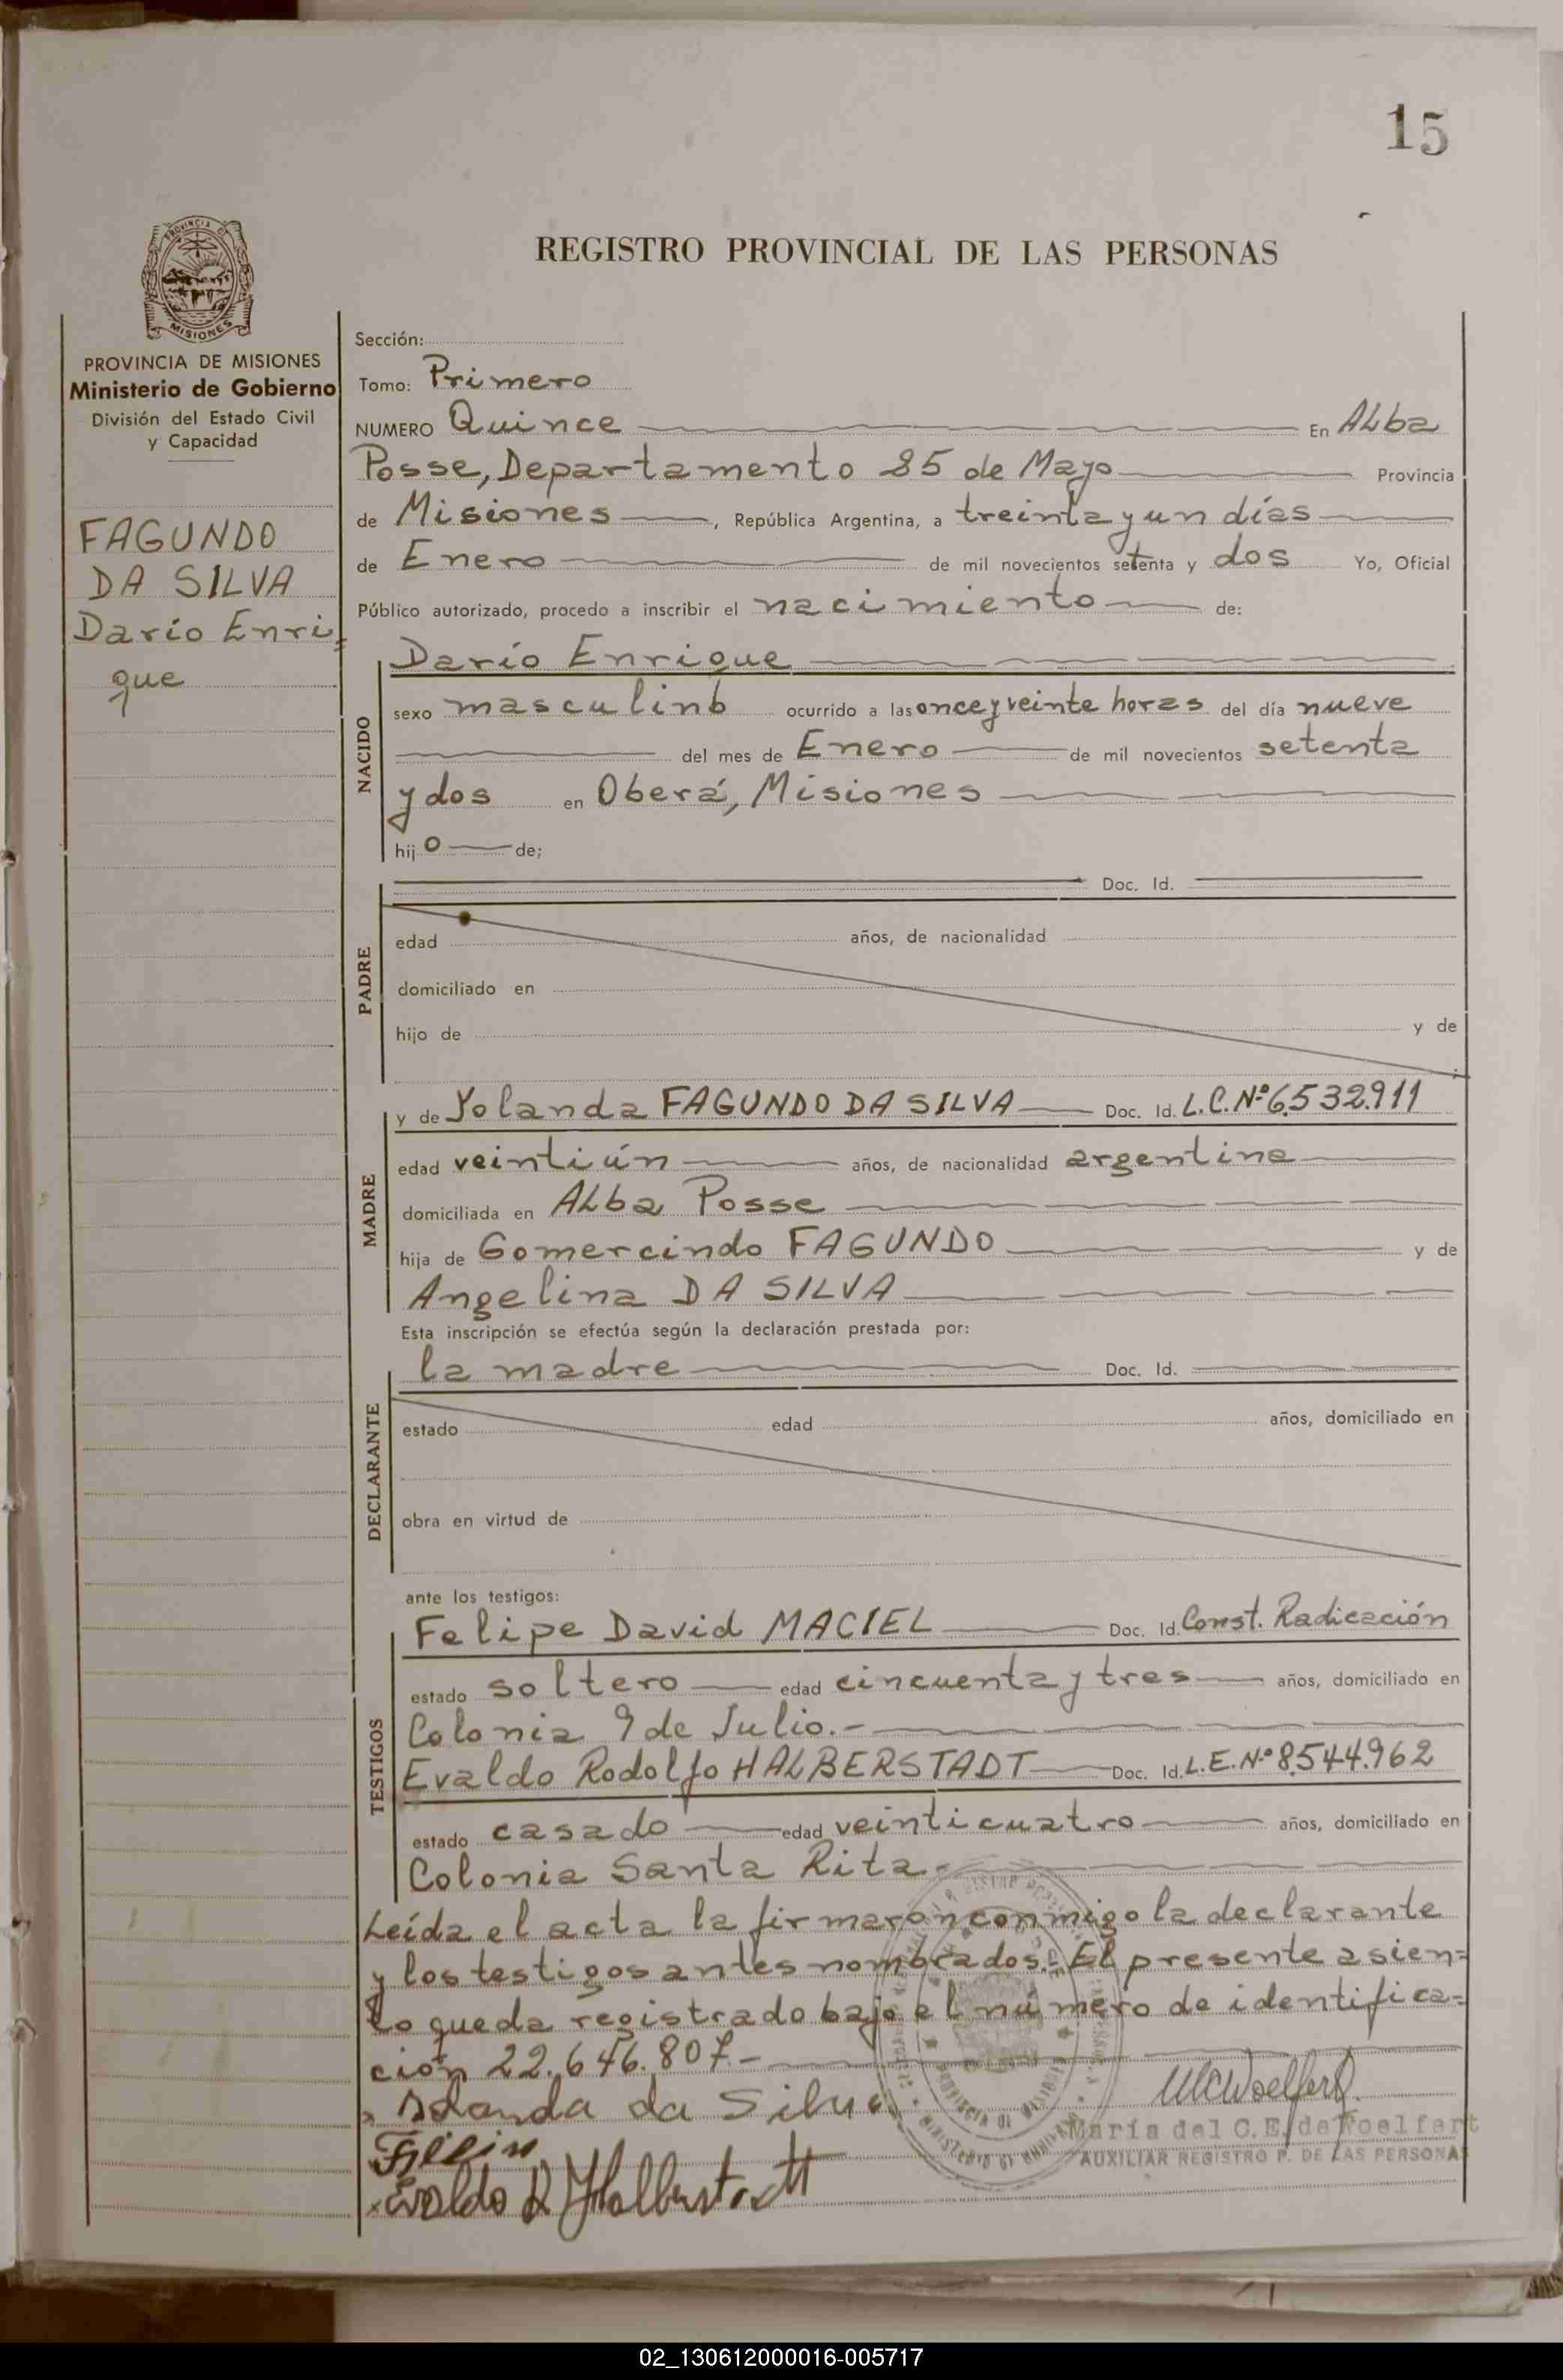 15
PROVINCIA DE
MISIONES
REGISTRO PROVINCIAL DE LAS PERSONAS
PROVINCIA DE MISIONES
Ministerio de Gobierno
División del Estado Civil
y Capacidad
FAGUNDO
DA SILVA
Darío Enri=
que
Sección:
Tomo: Primero
NUMERO Quince En Alba
Posse, Departamento 25 de Mayo Provincia
de Misiones, República Argentina, a treinta y un días
de Enero de mil novecientos setenta y dos Yo, Oficial
Público autorizado, procedo a inscribir el nacimiento de:
NACIDO
Darío Enrique
sexo masculino ocurrido a las once y veinte horas del día nueve
del mes de Enero de mil novecientos setenta
y dos en Oberá, Misiones
hijo de;
PADRE
Doc. Id.
edad años, de nacionalidad
domiciliado en
hijo de y de
MADRE
y de Yolanda FAGUNDO DA SILVA Doc. Id. L.C. Nº 6.532.911
edad veintiún años, de nacionalidad argentina
domiciliada en Alba Posse
hija de Gomercindo FAGUNDO y de
Angelina DA SILVA
Esta inscripción se efectúa según la declaración prestada por:
DECLARANTE
la madre Doc. Id.
estado edad años, domiciliado en
obra en virtud de
ante los testigos:
TESTIGOS
Felipe David MACIEL Doc. Id. Const. Radicación
estado soltero edad cincuenta y tres años, domiciliado en
Colonia 9 de Julio.-
Evaldo Rodolfo HALBERSTADT Doc. Id. L.E. Nº 8.544.962
estado casado edad veinticuatro años, domiciliado en
Colonia Santa Rita.-
Leída el acta la firmaron conmigo la declarante
y los testigos antes nombrados.- El presente asien=
to queda registrado bajo el número de identifica=
ción 22.646.807.-
da Silva
Evaldo R Halberstadt
María del C. E. de Woelfert
AUXILIAR REGISTRO P. DE LAS PERSONAS
02_130612000016-005717